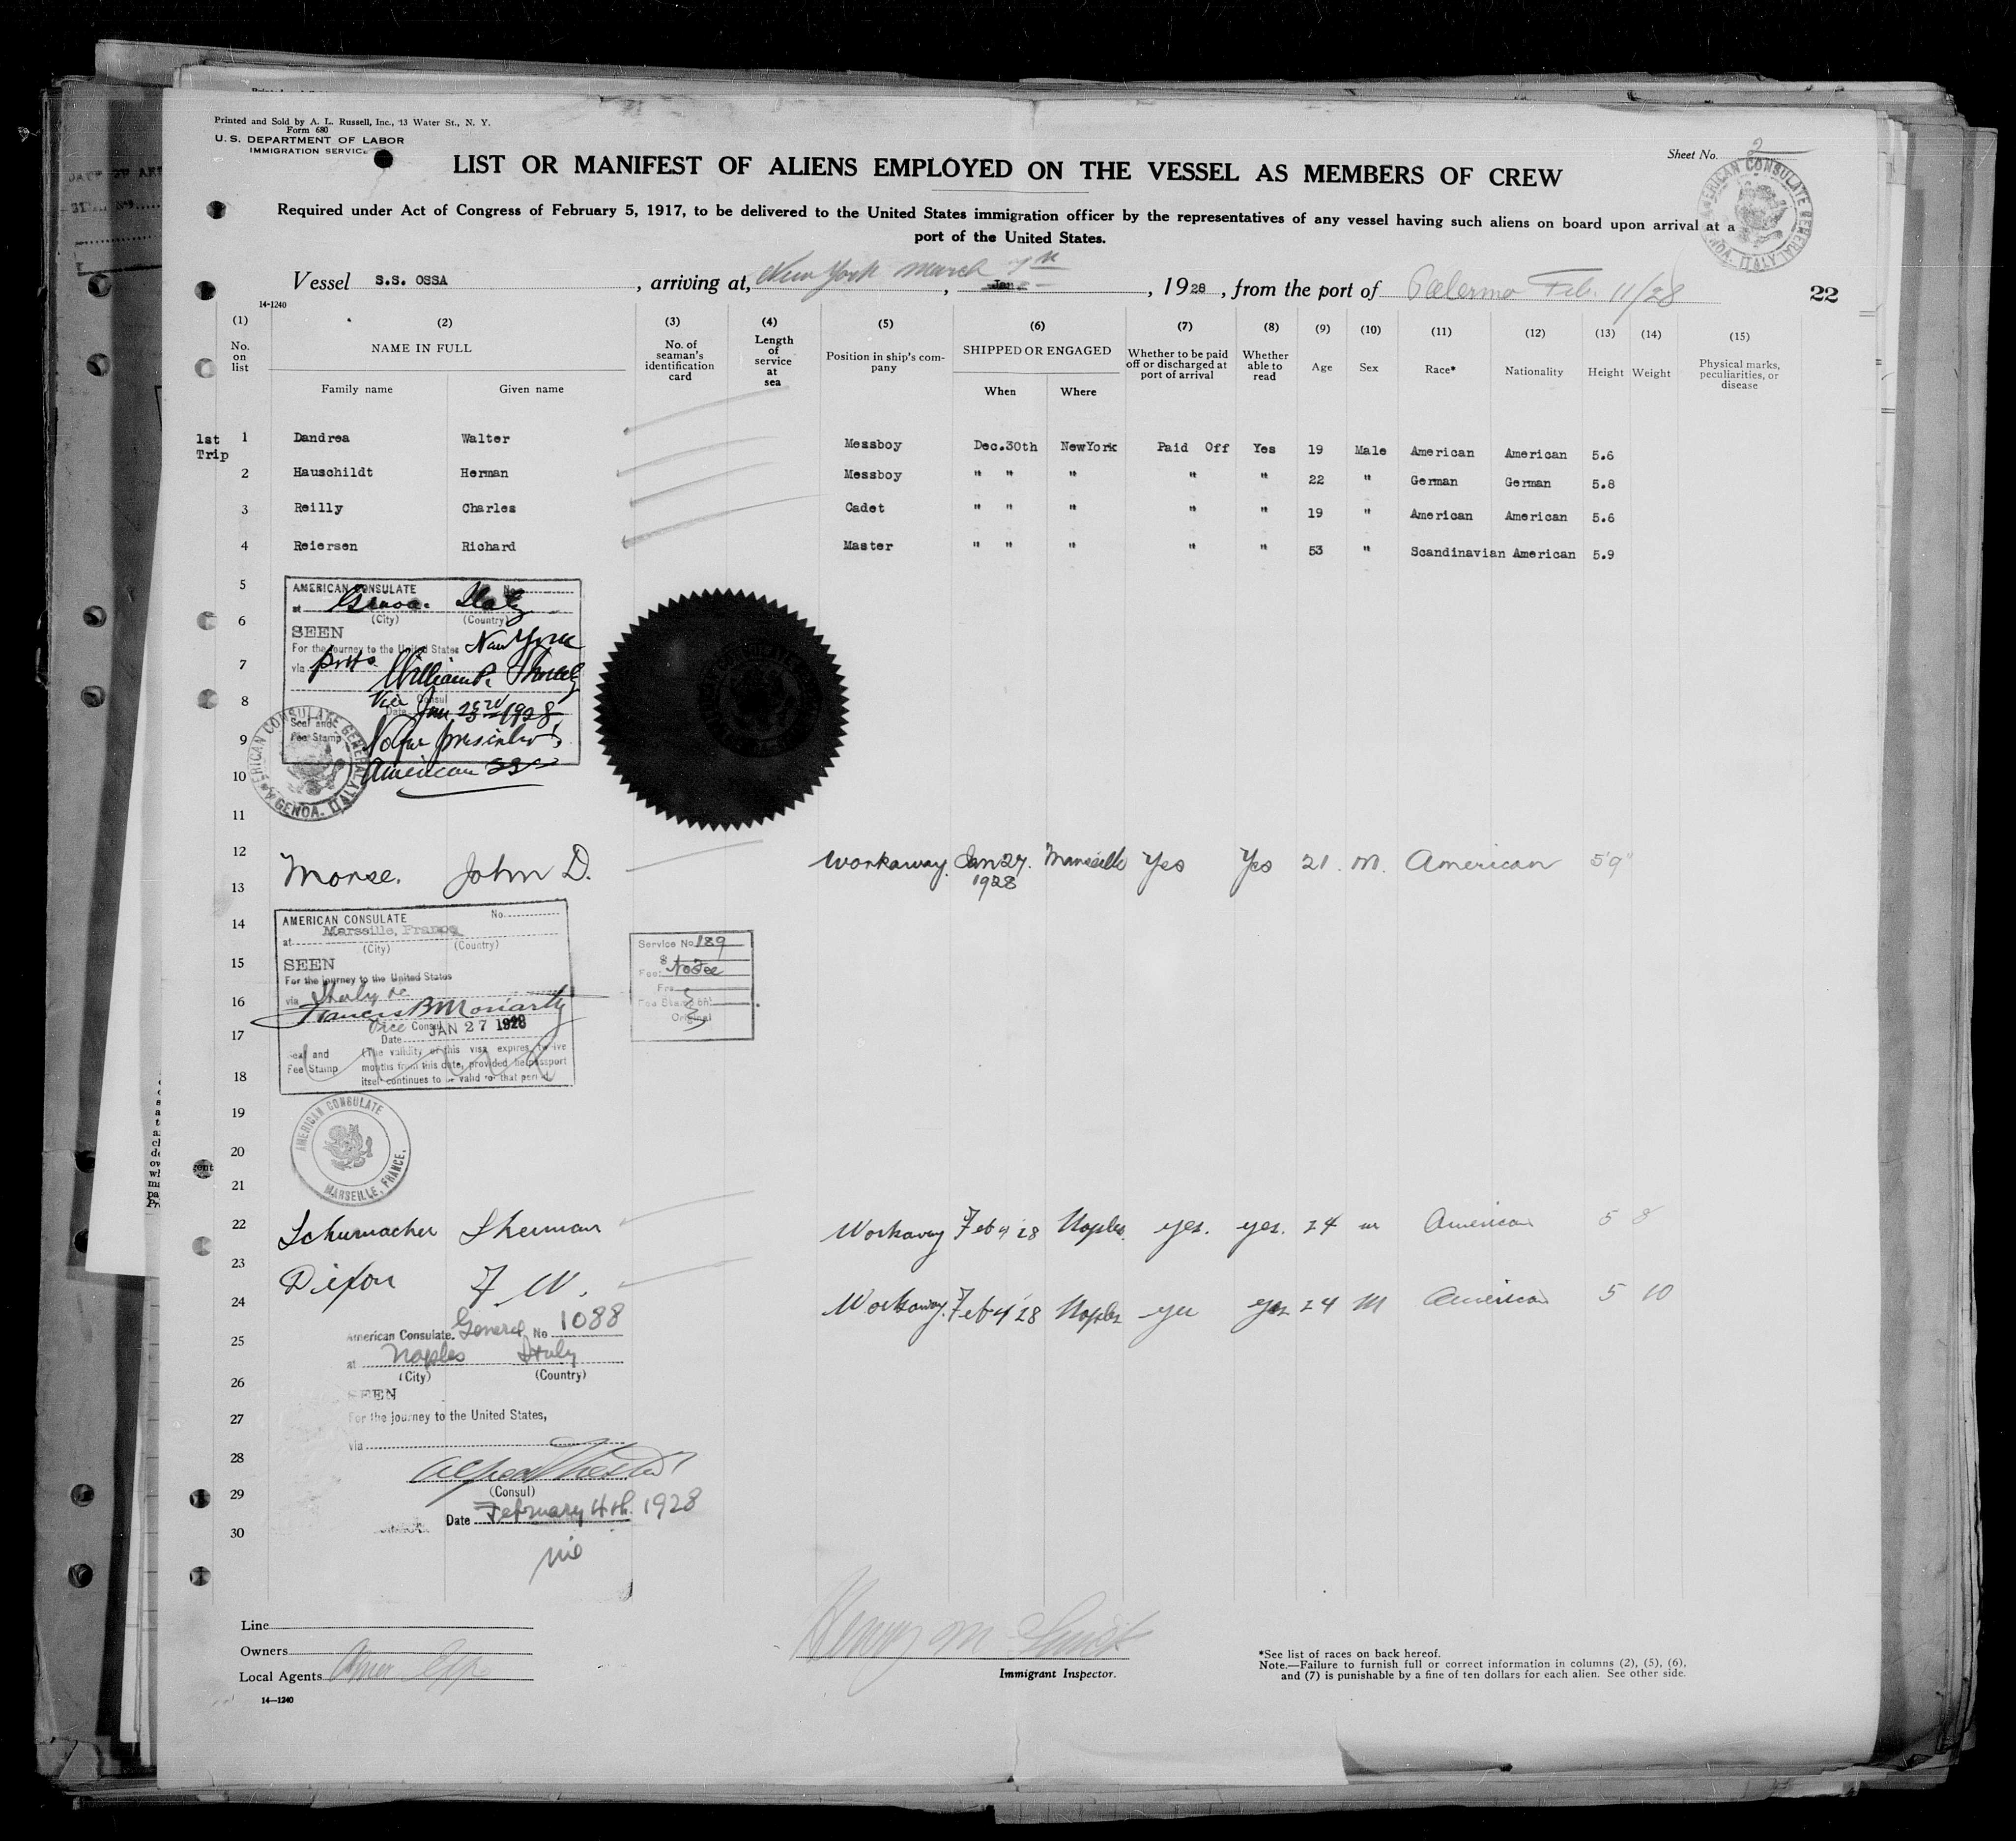 Printed and Sold by A. L. Russell, Inc., 13 Water St., N. Y.
Form 680
U. S. DEPARTMENT OF LABOR
IMMIGRATION SERVICE
Sheet No. 2
LIST OR MANIFEST OF ALIENS EMPLOYED ON THE VESSEL AS MEMBERS OF CREW
Required under Act of Congress of February 5, 1917, to be delivered to the United States immigration officer by the representatives of any vessel having such aliens on board upon arrival at a
port of the United States.
Vessel S.S. OSSA, arriving at, New York March 7th, Jan 1928, from the port of Palermo Feb. 11/28
22
14-1240
(1) (2) (3) (4) (5) (6) (7) (8) (9) (10) (11) (12) (13) (14) (15)
No. on list NAME IN FULL Family name Given name No. of seaman's identification card Length of service at sea Position in ship's company SHIPPED OR ENGAGED When Where Whether to be paid off or discharged at port of arrival Whether able to read Age Sex Race* Nationality Height Weight Physical marks, peculiarities, or disease
1st Trip 1 Dandrea Walter Messboy Dec.30th NewYork Paid Off Yes 19 Male American American 5.6
2 Hauschildt Herman Messboy " " " " " 22 " German German 5.8
3 Reilly Charles Cadet " " " " " 19 " American American 5.6
4 Reiersen Richard Master " " " " " 53 " Scandinavian American 5.9
5
AMERICAN CONSULATE No.
at Genoa. Italy
6
(City) (Country)
SEEN
For the journey to the United States New York
7
via ports William P.
8
Vice Consul
Date Jan 23rd 1928
Seal and
Fee Stamp
9
No fee presented
10
American SS
AMERICAN CONSULATE GENERAL GENOA. ITALY
11
12
Morse. John D. Workaway. Jan 27. 1928 Marseille Yes Yes 21. M. American 5'9"
13
14
AMERICAN CONSULATE No.
at Marseille, France
(City) (Country)
15
SEEN
For the journey to the United States
16
via Italy &c
Francis B Moriarty
17
Vice Consul
Date JAN 27 1928
Seal and
Fee Stamp
(The validity of this visa expires twelve
months from this date, provided the passport
itself continues to be valid for that period.
18
Service No 189
Fee: No Fee
Frs
Fee Stamp on
Original
19
AMERICAN CONSULATE
MARSEILLE, FRANCE.
20
21
22 Schumacher Sherman Workaway Feb 4 '28 Naples. yes. yes. 24 m American 5 8
23
Dixon F W. Workaway. Feb 4 '28 Naples yes yes 24 M American 5 10
24
American Consulate. General No 1088
25
at Naples Italy
(City) (Country)
26
SEEN
27
For the journey to the United States,
via
28
(Consul)
29
Date February 4th. 1928
30
Line
Owners
Local Agents
Henry M
Immigrant Inspector.
*See list of races on back hereof.
Note.—Failure to furnish full or correct information in columns (2), (5), (6),
and (7) is punishable by a fine of ten dollars for each alien. See other side.
14—1240